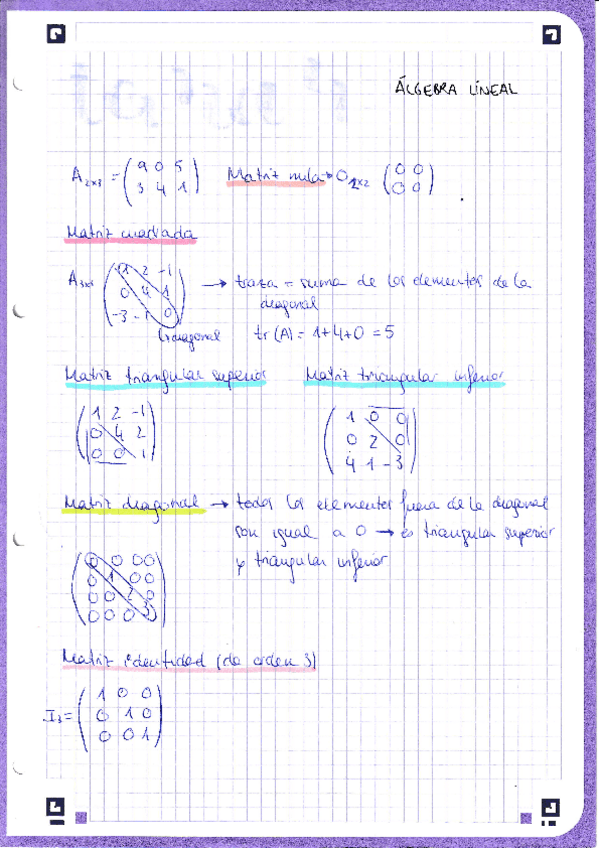 ÁLGEBRA LINEAL
A2x3 = (9 0 5 Matriz nula → O2x2 (0 0
3 4 1) 0 0)
Matriz cuadrada
A3x3 (1 2 -1 → traza = suma de los elementos de la
0 4 1 diagonal
-3 -1 0) tr (A) = 1+4+0 = 5
↳ diagonal
Matriz triangular superior Matriz triangular inferior
(1 2 -1 (1 0 0
0 4 2 0 2 0
0 0 1) 4 1 -3)
Matriz diagonal → todos los elementos fuera de la diagonal
son igual a 0 → es triangular superior
y triángular inferior
(0 0 0 0
0 1 0 0
0 0 2 0
0 0 0 3)
Matriz identidad (de orden 3)
I3 = (1 0 0
0 1 0
0 0 1)